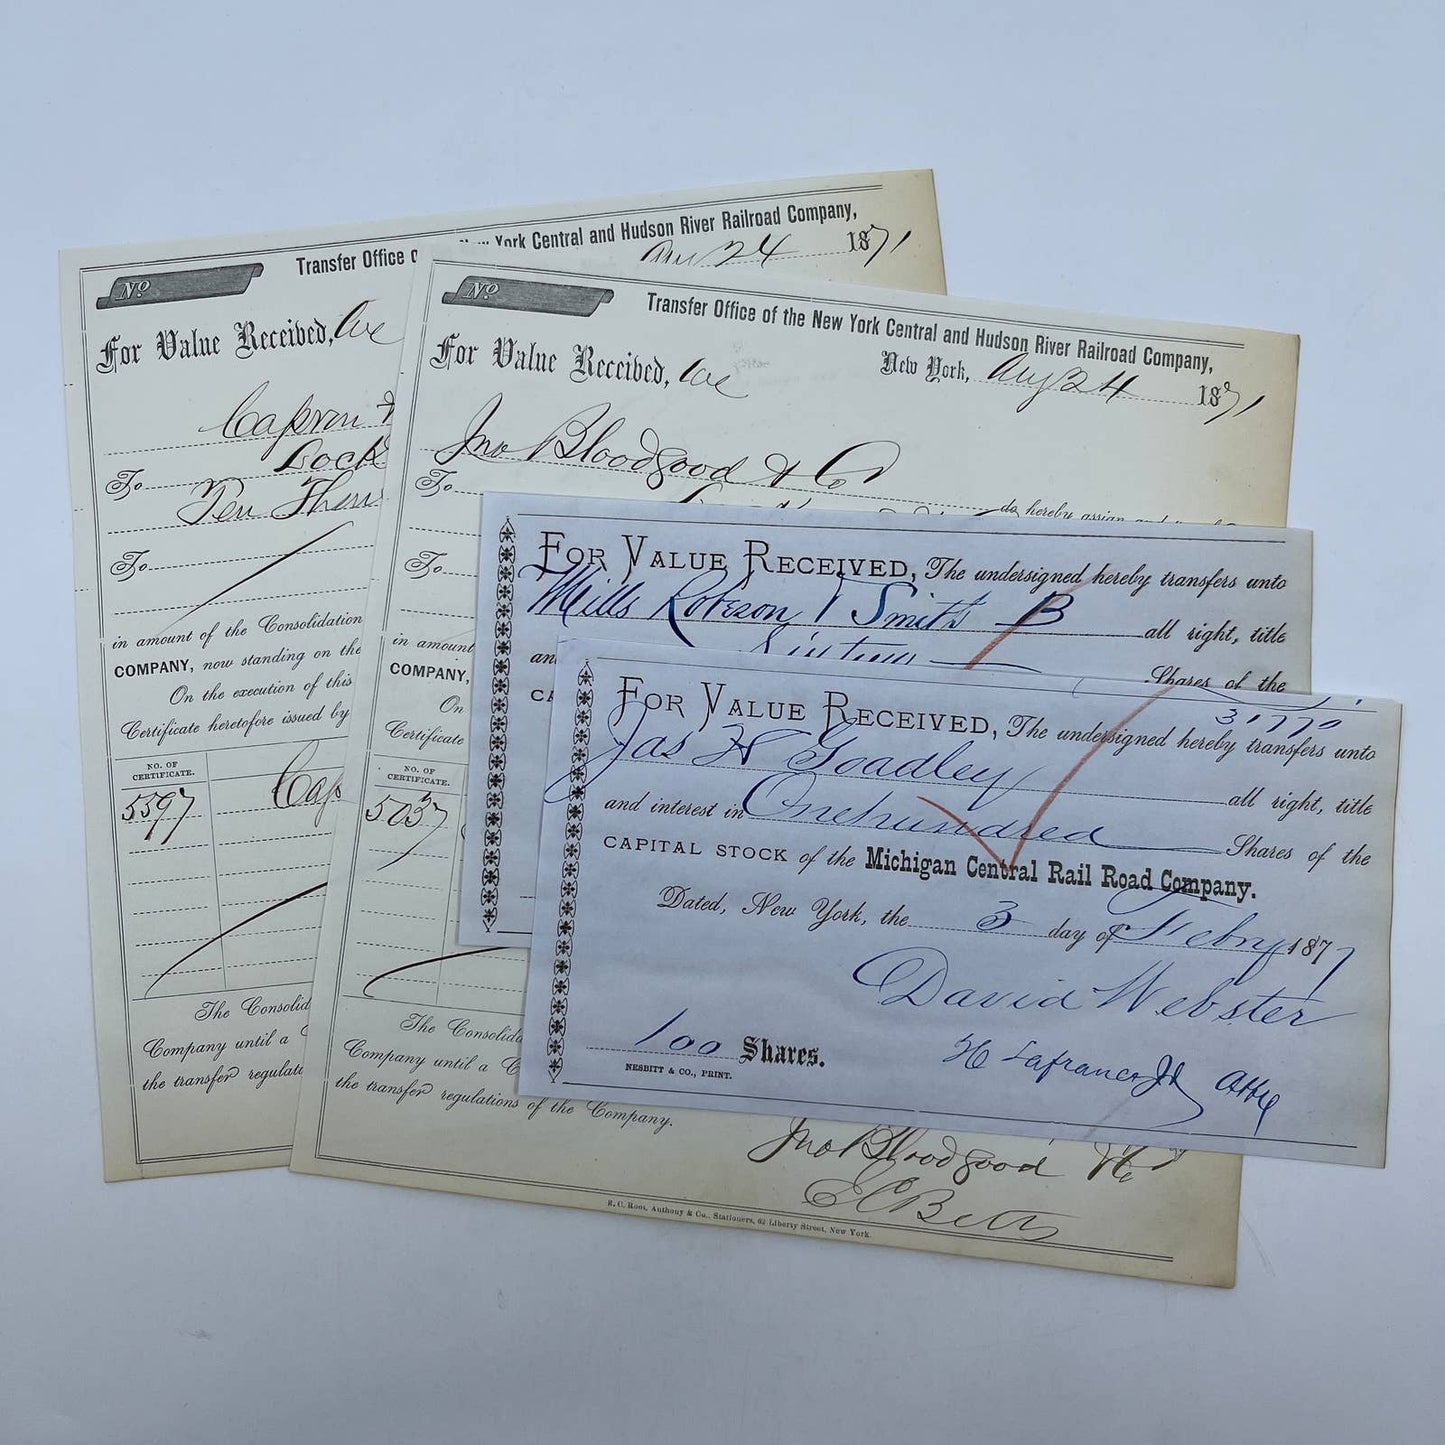 Transfer Office of New York Central and Hudson River Railroad Company,
No
24 1871
For Value Received, we
Capron
To Lock
Ten Thous
To
in amount of the Consolidation
COMPANY, now standing on the
On the execution of this
Certificate heretofore issued by
NO. OF
CERTIFICATE.
5597
Cap
The Consolid
Company until a
the transfer regulat
Transfer Office of the New York Central and Hudson River Railroad Company,
No
New York, Aug 24 1871
For Value Received, we
Jno Bloodgood & Co
To
do hereby assign and
To
in amount
COMPANY,
On
Certificate
NO. OF
CERTIFICATE.
5037
The Consolid
Company until a C
the transfer regulations of the Company.
Jno Bloodgood & Co
E C Betts
R. C. Root, Anthony & Co., Stationers, 62 Liberty Street, New York.
FOR VALUE RECEIVED, The undersigned hereby transfers unto
Mills Robeson & Smith B all right, title
an Shares of the
CA
31770
FOR VALUE RECEIVED, The undersigned hereby transfers unto
Jas H Goadley all right, title
and interest in One hundred Shares of the
CAPITAL STOCK of the Michigan Central Rail Road Company.
Dated, New York, the 3 day of Febry 1877
David Webster
100 Shares.
Atty
NESBITT & CO., PRINT.